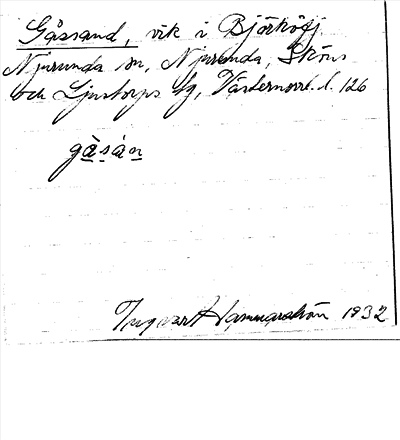 Gåssand, vik i Björköfj.
Njurunda sn, Njurunda, Sköns
och Ljustorps tg, Västernorrl. l. 126
gåsán
Ingvar Hammarström 1932